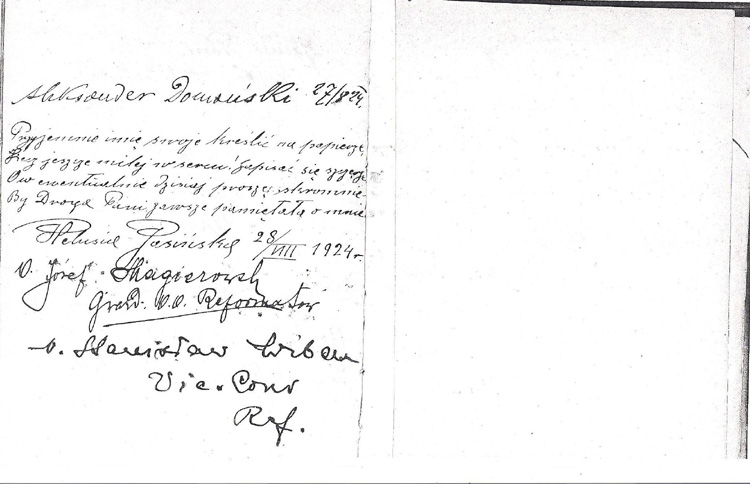 Aleksander Domański 27/8 24.
Przyjemnie imię swoje kreślić na papierze,
Lecz jeszcze milej w sercu zapisać się szczerze
O w ewentualnie dzisiaj proszę skromnie
By Droga Pani zawsze pamiętała o mnie
Helusia Jasińska 28/VIII 1924 r
O. Józef
Gward. O.O. Reformatów
O. Stanisław
Vic. Conv
Ref.